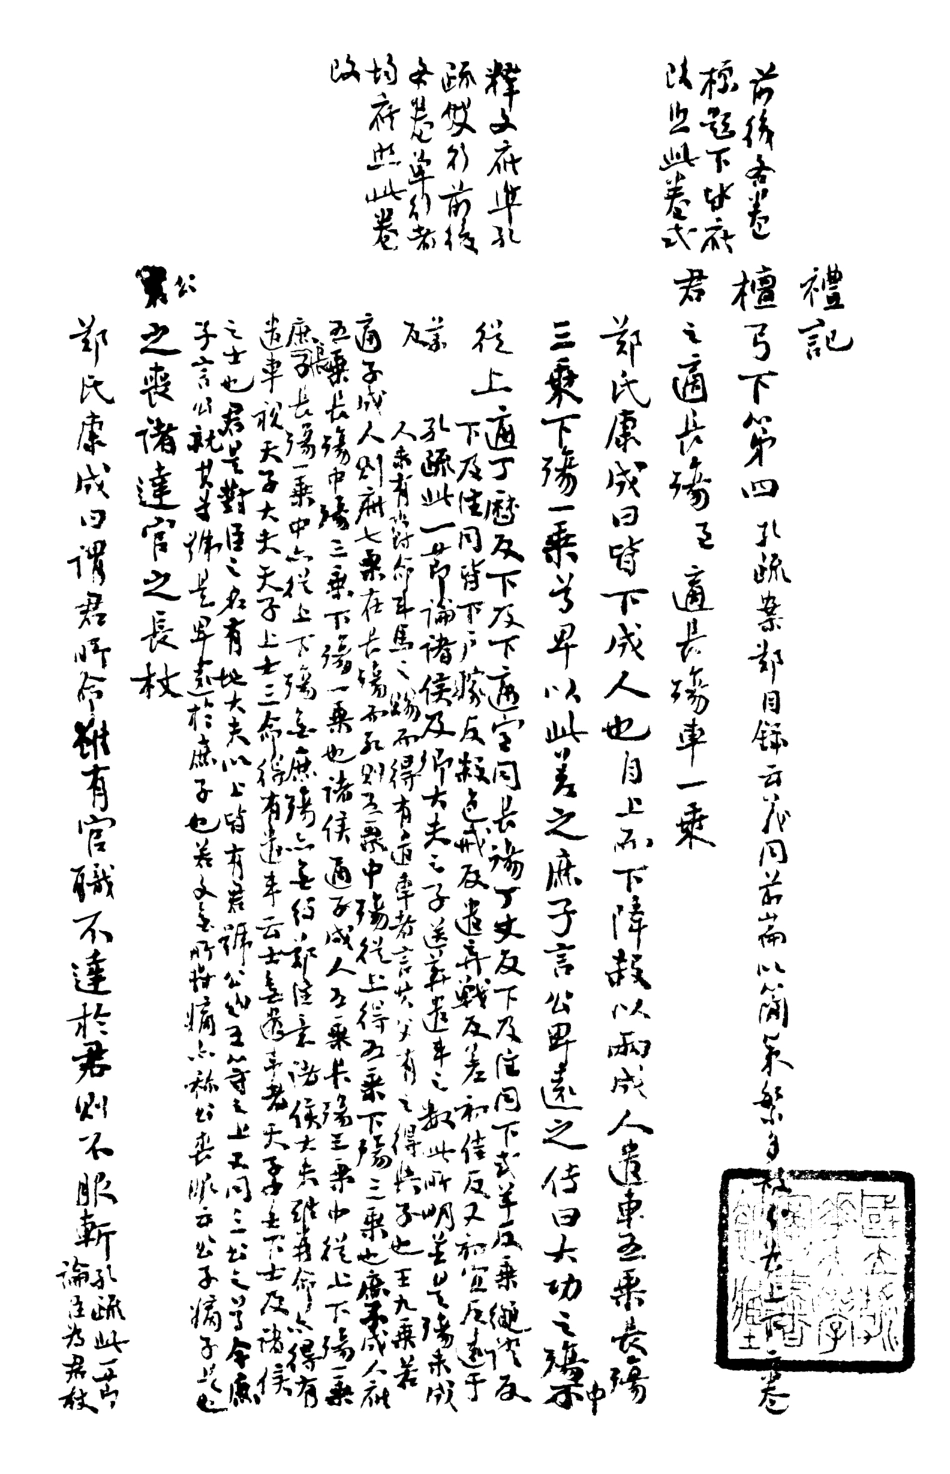 前後各卷
標題下皆應
改照此卷式
釋文應準孔
疏雙行前後
各卷單行者
均應照此卷
改
禮記
檀弓下第四孔疏案鄭目録云義同前篇以簡策繁多故分為上下二卷
君之適長殤三適長殤車一乘
鄭氏康成曰皆下成人也自上而下降殺以兩成人遣車五乘長殤
三乘下殤一乘尊卑以此差之庶子言公卑遠之傳曰大功之殤中
從上適丁歷反下及下適室同長殤丁丈反下及注同下式羊反乘繩證反
下及注同皆下戶嫁反殺色戒反遣弃戰反差初佳反又初宜反遠于
萬反
孔疏此一節論諸侯及卿大夫之子送葬遣車之數此所明並是殤未成
人未有爵命車馬之賜而得有遣車者言其父有之得與子也王九乘若
適子成人則應七乘在長殤而死則五乘中殤從上得五乘下殤三乘也庶子成人應
五乘長殤中殤三乘下殤一乘也諸侯適子成人五乘長殤三乘中從上下殤一乘
庶子長殤一乘中亦從上下殤無庶殤亦無
遣車視天子大夫天子上士三命得有遣車云士無遣車者天子中下士及諸侯
之士也君是對臣之名有地大夫以上皆有君號公
子言公就其尊號是卑遠於庶子也若文無所對嫡亦稱公喪服云公子嫡子是也
公之喪諸達官之長杖
鄭氏康成曰謂君所命雖有官職不達於君則不服斬孔疏此一節
論臣為君杖